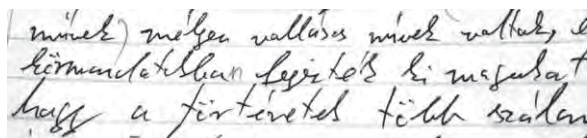 művek) mélyen vallásos művek voltak, é
körmondatokban fejezték ki magukat
hogy a történetek több szálon